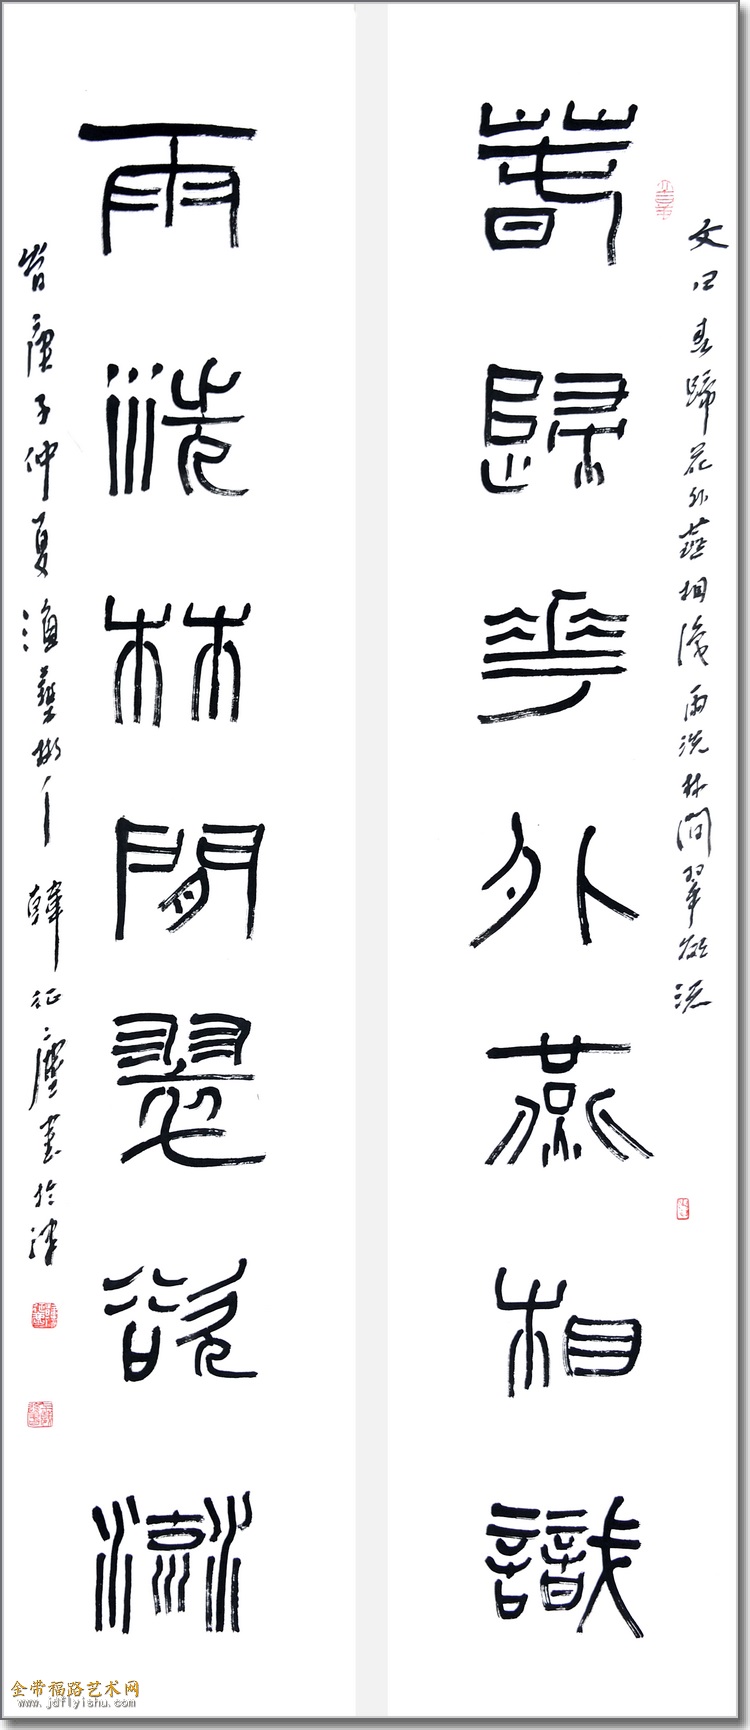 文曰春歸花外燕相識雨洗林間翠欲流
春歸花外燕相識
雨洗林間翠欲流
庚子仲夏漁藝樹下韓征塵書於津
金带福路艺术网
www.jdflyishu.com